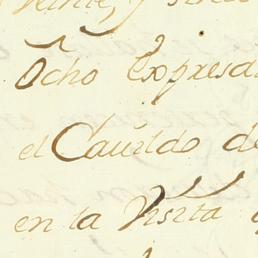 Ocho Expresa
el Cauildo de
en la Visita